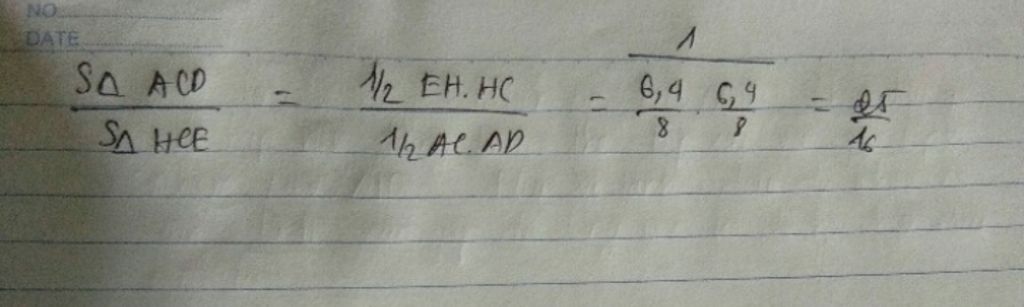 NO
DATE
SΔ ACD / SΔ HCE = 1/2 EH.HC / 1/2 AC.AD = 1 / (6,4/8 . 6,4/8) = 25/16